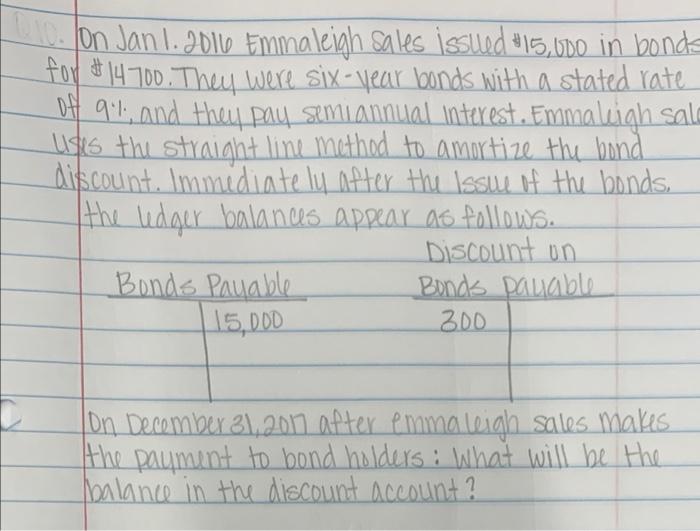 Q10. On Jan 1. 2016 Emmaleigh sales issued $15,000 in bonds
for $14700. They were six-year bonds with a stated rate
of 9%, and they pay semiannual interest. Emmaleigh sale
uses the straight line method to amortize the bond
discount. Immediately after the Issue of the bonds,
the ledger balances appear as follows.
Discount on
Bonds Payable Bonds payable
15,000 300
On December 31, 2017 after emmaleigh sales makes
the payment to bond holders: What will be the
balance in the discount account?